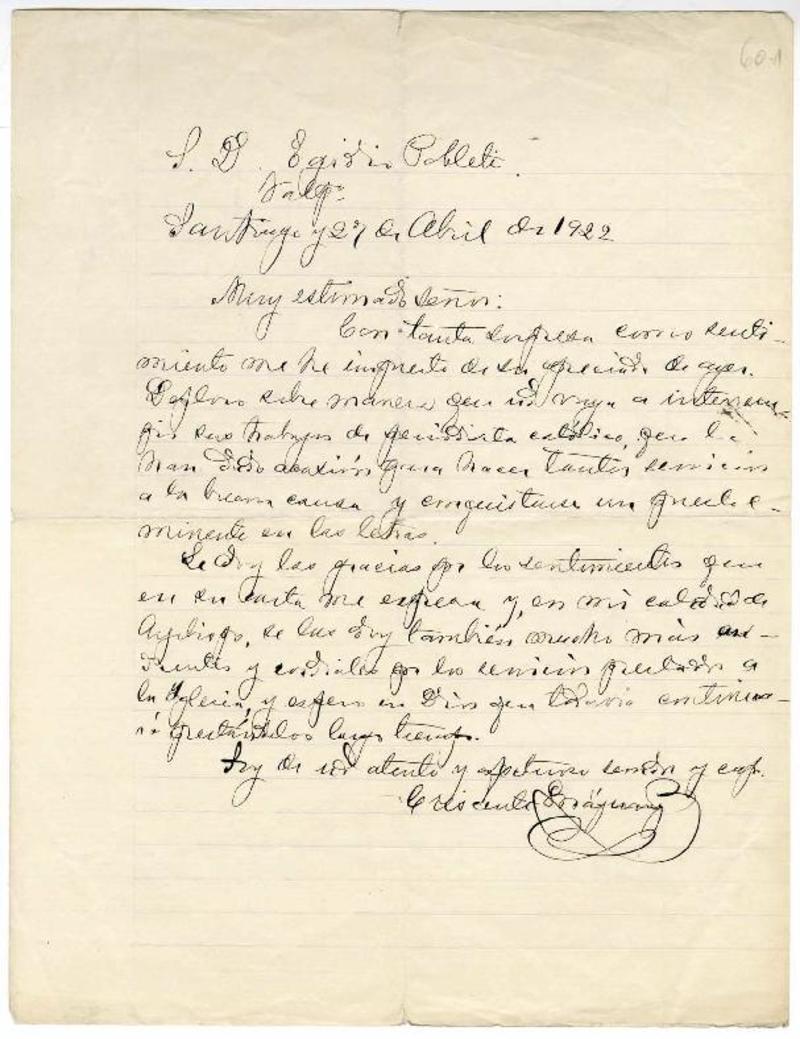 60-1
S. D. Egidio Poblete.
Valpo.
Santiago y 27 de Abril de 1922
Muy estimado señor:
Con tanta sorpresa como senti-
miento me he impuesto de su apreciada de ayer.
Deploro sobre manera que ud vaya a interrum-
pir sus trabajos de periodista católico, que le
han dado ocasión para hacer tantos servicios
a la buena causa y conquistarse un puesto e-
minente en las letras.
Le doy las gracias por los sentimientos que
en su carta me expresa y, en mi calidad de
se las doy también mucho más ar-
dientes y cordiales por los servicios prestados a
la Iglesia, y espero en Dios que todavía continua-
rá prestándolos largo tiempo.
Soy de ud atento y afectuoso servidor y cap.
Crescente Errázuriz